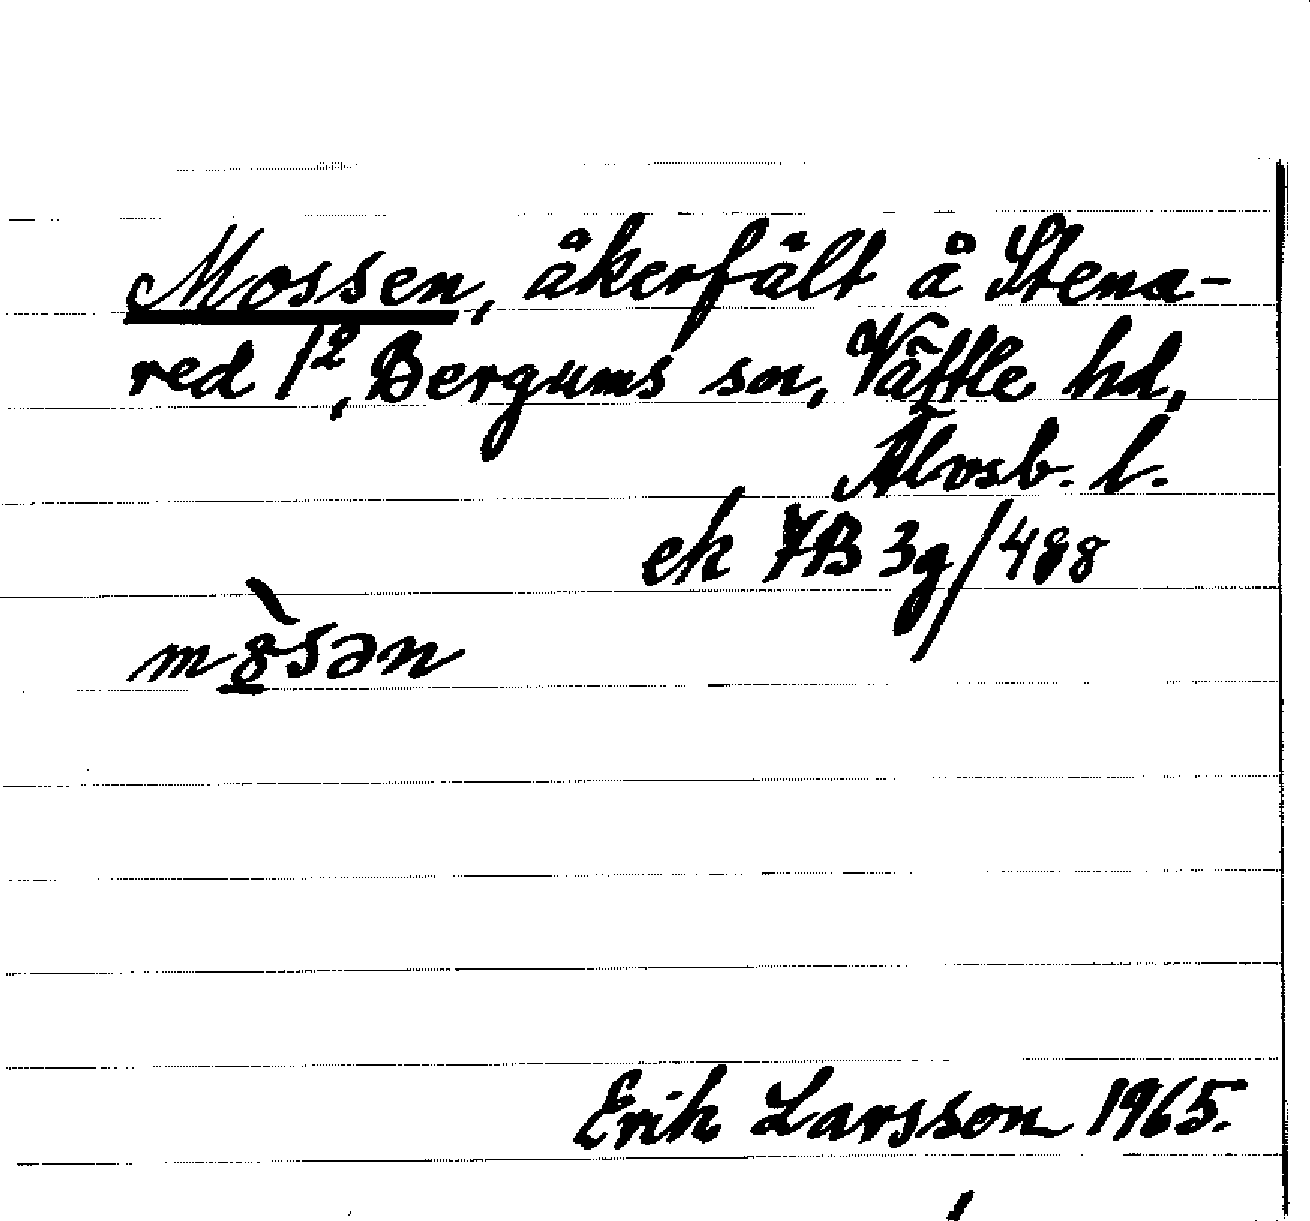 Mossen, åkerfält å Stena-
red 1², Bergums sn, Vättle hd,
Älvsb. l.
ek 7B 3g/488
m8̲̀sən
Erik Larsson 1965.